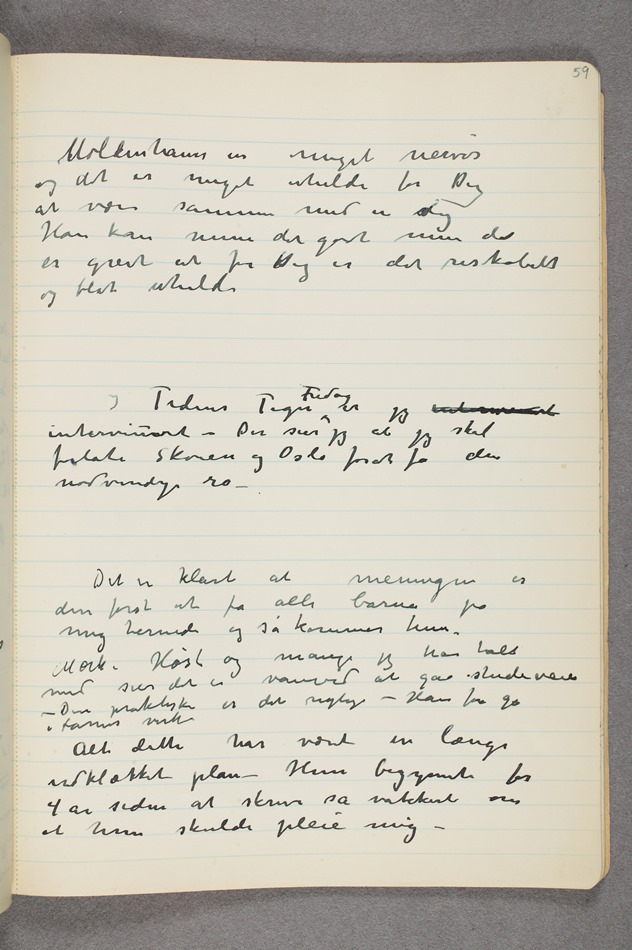 59
Moldenhauer er meget nervøs
og det er meget uheldi for Dig
at være sammen med en dig
Han kan mene det godt men det
er greit at for Dig er det reskabelt
og blot uheldi
I Tidens Tegn Fredag er jeg
interviuet – Der sier jeg at jeg skal
forlate Skøien og Oslo forat få den
nødvendige ro –
Det er klart at meningen er
den først at få alle barna på
mig hernede og så kommer hun.
Mørk. Høst og mange jeg har talt
med sier det er vanvid at gaa studieveien
– Den praktiske er det rigtige – Kan få gå
i Farens
Alt dette har været en længe
udklækket plan – Hun begyndte for
4 år siden at skrive så vakkert om
at hun skulde pleie mig –